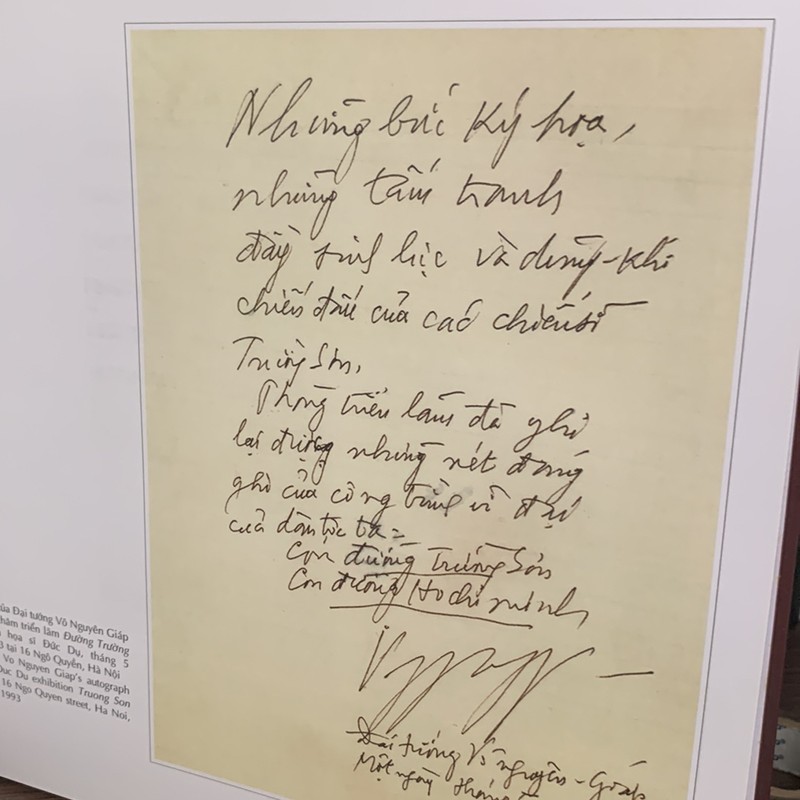 Những bức ký họa,
những tấm tranh
đầy sinh lực và dũng-khí
chiến đấu của các chiến sĩ
Trường Sơn,
Phòng triển lãm đã ghi
lại được những nét đáng
ghi của công trình vĩ đại
của dân tộc ta =
Con đường Trường Sơn
Con đường Hồ Chí Minh
Đại tướng Võ Nguyên-Giáp
Một ngày tháng
ủa Đại tướng Võ Nguyên Giáp
hăm triển lãm Đường Trường
họa sĩ Đức Dụ, tháng 5
3 tại 16 Ngô Quyền, Hà Nội
Vo Nguyen Giap's autograph
Duc Du exhibition Truong Son
16 Ngo Quyen street, Ha Noi,
1993